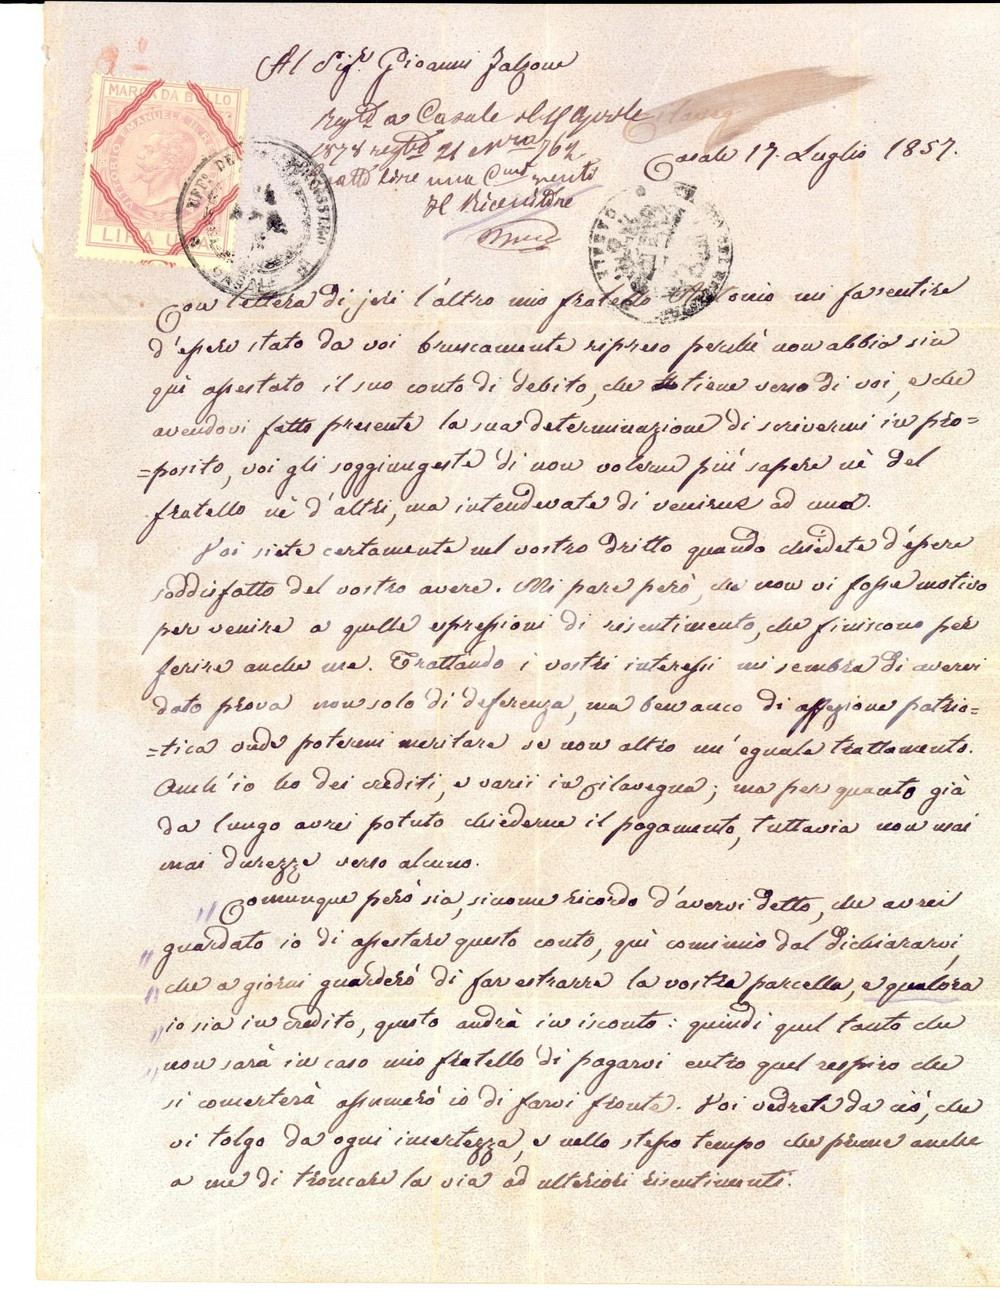 Al Sigr. Gioanni Falzone
MARCA DA BOLLO
VITTORIO EMANUELE II RE
LIRA UNA
UFFo. DE REGISTRO
CASALE
Casale 17. Luglio 1857.
Regtd a Casale il 11 Aprile
1878 regtro 21 N 762
atto lire una Cent venti
Il Ricevitore
Con lettera di jeri l'altro mio fratello Antonio mi fa sentire
d'essere stato da voi bruscamente ripreso perchè non abbia sin
quì assestato il suo conto di debito, che tiene verso di voi, e che
avendovi fatto presente la sua determinazione di scrivermi in pro=
=posito, voi gli soggiungeste di non volerne più sapere nè del
fratello nè d'altri, ma intendevate di venirne ad una.
Voi siete certamente nel vostro dritto quando chiedete d'essere
soddisfatto del vostro avere. Mi pare però, che non vi fosse motivo
per venire a quelle espressioni di risentimento, che finiscono per
ferire anche me. Trattando i vostri interessi mi sembra di avervi
dato prova non solo di deferenza, ma ben anco di affezione patrio=
=tica onde potermi meritare se non altro un' eguale trattamento.
Anch'io ho dei crediti, e varii in Cilavegna; ma per quanto già
da lungo avrei potuto chiederne il pagamento, tuttavia non usai
mai durezze verso alcuno.
" Comunque però sia, siccome ricordo d'avervi detto, che avrei
" guardato io di assestare questo conto, quì comincio dal dichiararvi,
" che a giorni guarderò di far estrarre la vostra parcella, e qualora
" io sia in credito, questo andrà in isconto: quindi quel tanto che
" non sarà in caso mio fratello di pagarvi entro quel respiro che
si concerterà assumerò io di farvi fronte. Voi vedrete da ciò, che
vi tolgo da ogni incertezza, e nello stesso tempo che preme anche
a me di troncare la via ad ulteriori risentimenti.